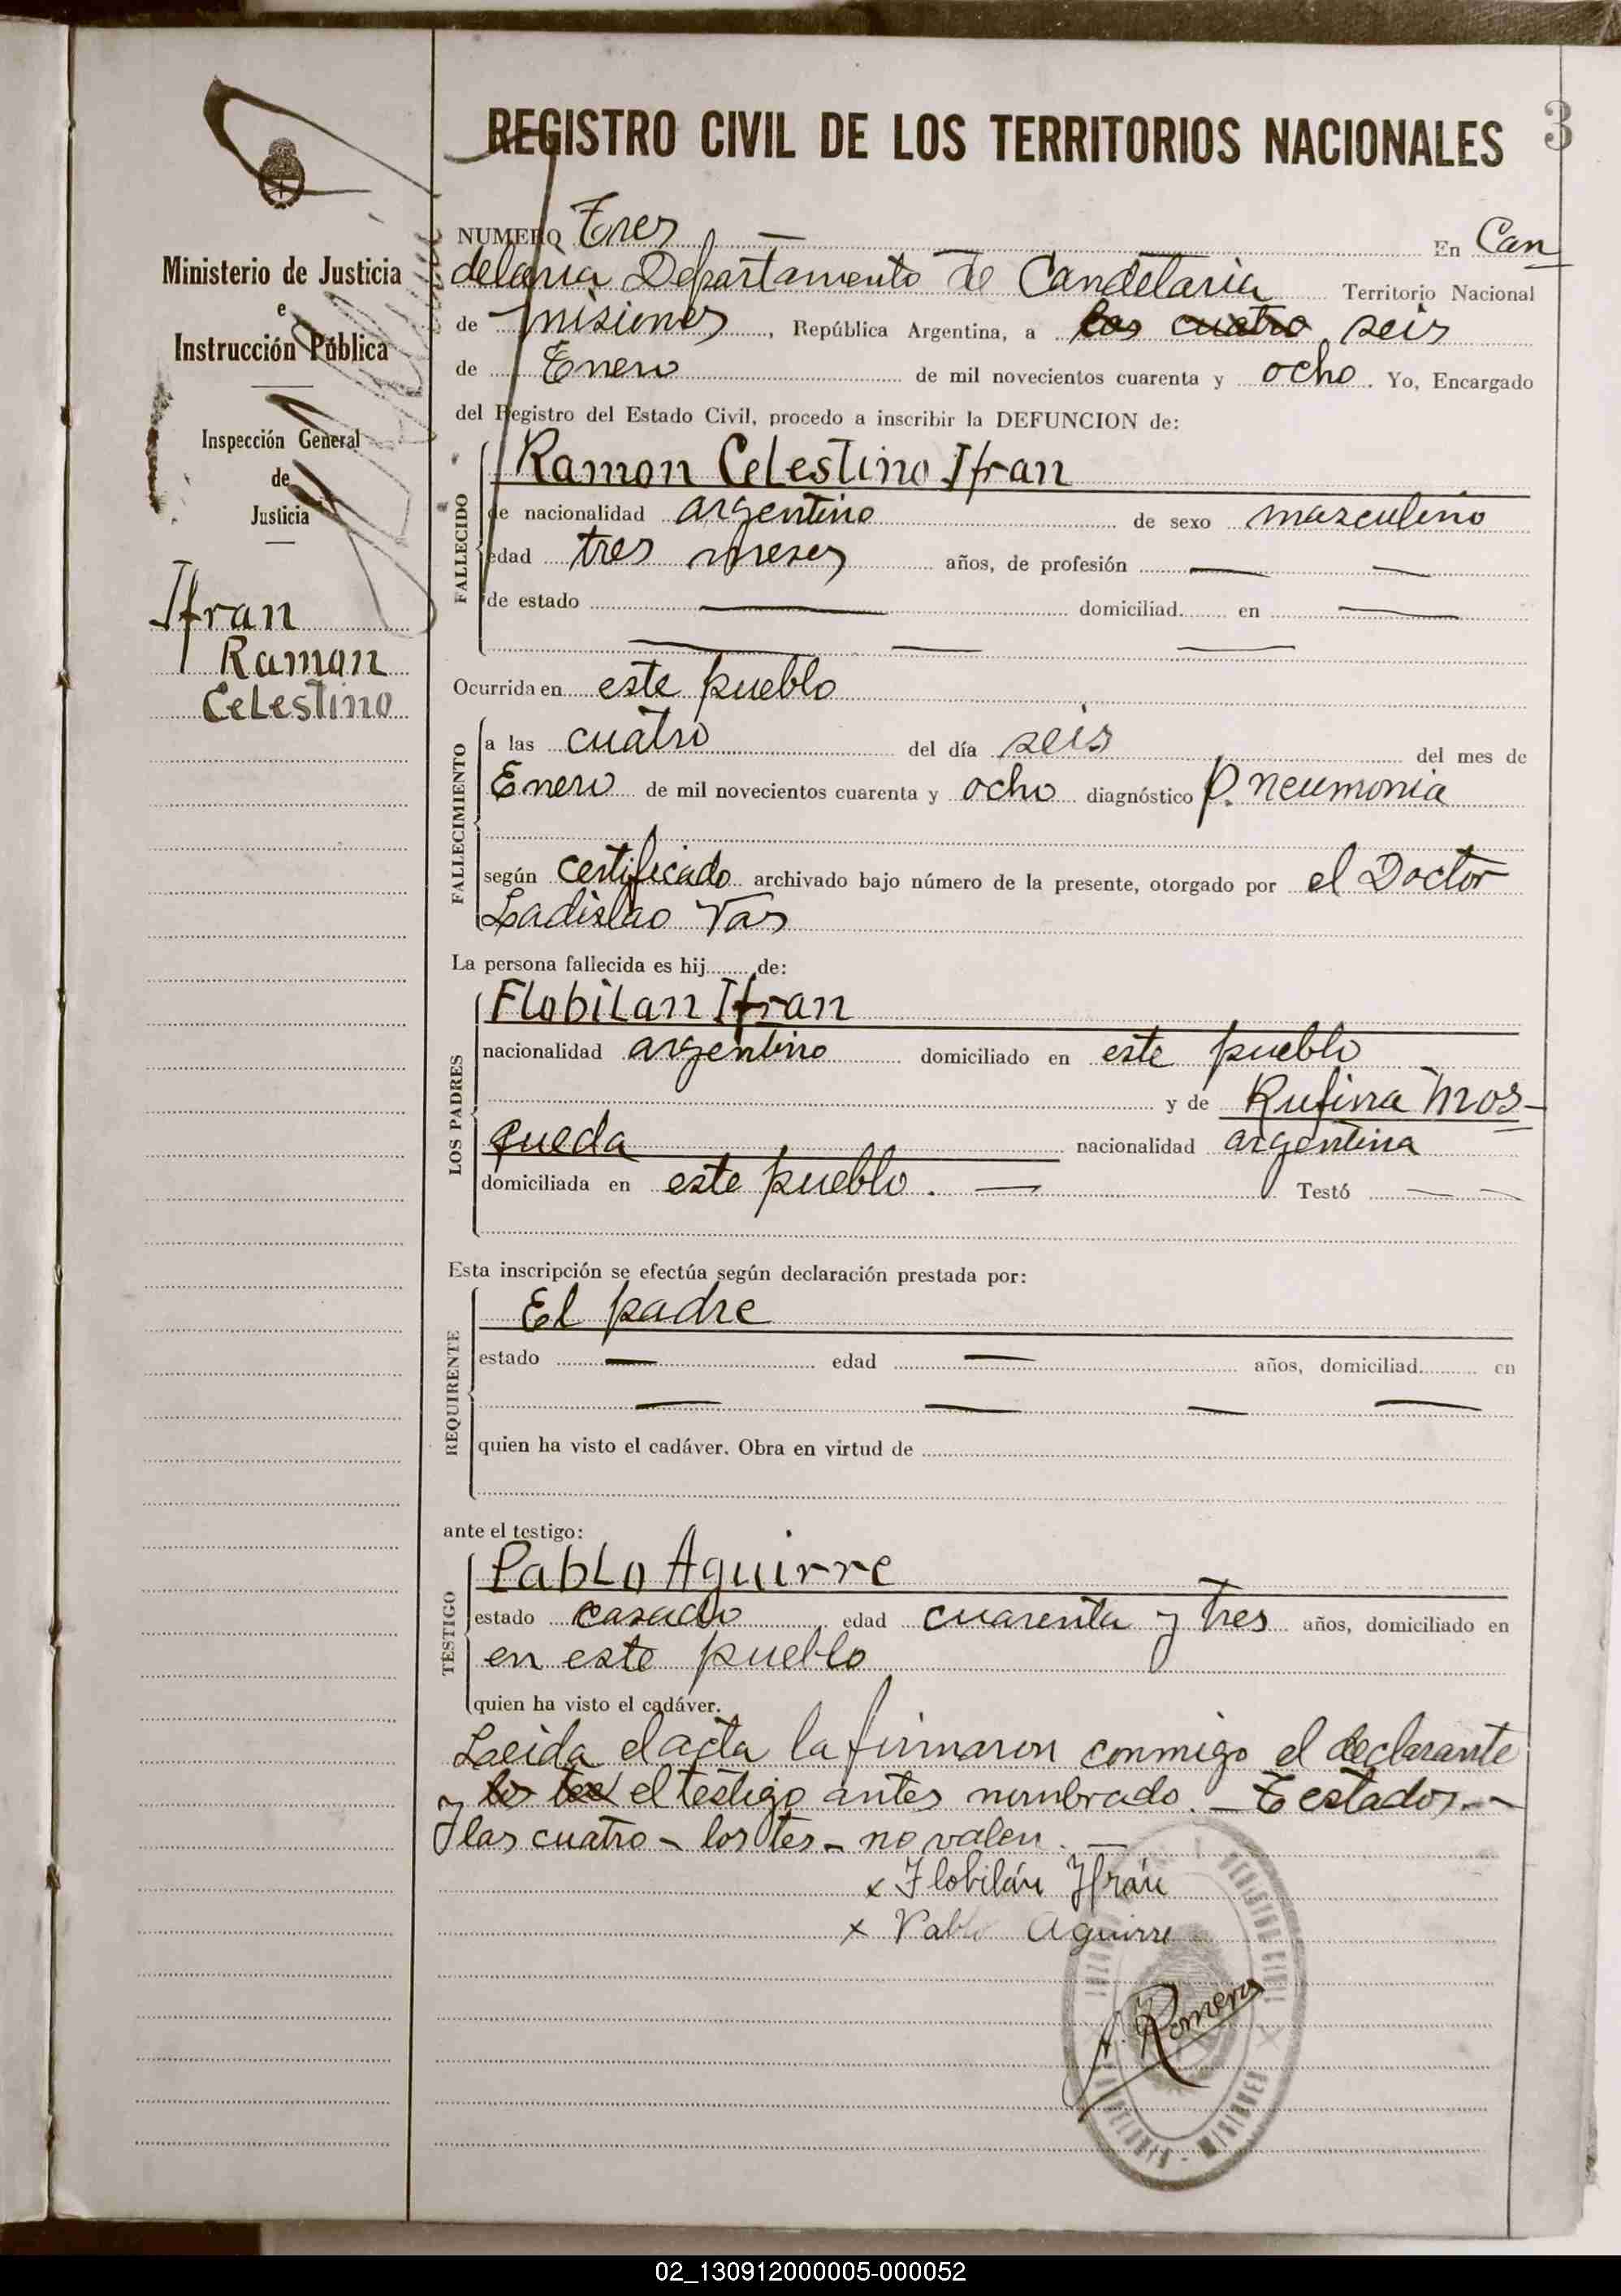 REGISTRO CIVIL DE LOS TERRITORIOS NACIONALES 3
Ministerio de Justicia
e
Instrucción Pública
Inspección General
de
Justicia
Ifran
Ramon
Celestino
NUMERO Tres — En Can
delaria Departamento de Candelaria Territorio Nacional
de misiones, República Argentina, a las cuatro seis
de Enero de mil novecientos cuarenta y ocho. Yo, Encargado
del Registro del Estado Civil, procedo a inscribir la DEFUNCION de:
FALLECIDO
Ramon Celestino Ifran
de nacionalidad argentino de sexo masculino
edad tres meses años, de profesión — —
de estado — domiciliad en —
— — —
Ocurrida en este pueblo
FALLECIMIENTO
a las cuatro del día seis del mes de
Enero de mil novecientos cuarenta y ocho diagnóstico P. neumonia
según certificado archivado bajo número de la presente, otorgado por el Doctor
Ladislao Vas
La persona fallecida es hij de:
LOS PADRES
Flobilan Ifran
nacionalidad argentino domiciliado en este pueblo
y de Rufina Mos-
queda nacionalidad argentina
domiciliada en este pueblo. — Testó — —
Esta inscripción se efectúa según declaración prestada por:
REQUIRENTE
El padre
estado — edad — años, domiciliad en
— — — —
quien ha visto el cadáver. Obra en virtud de
ante el testigo:
TESTIGO
Pablo Aguirre
estado casado edad cuarenta y tres años, domiciliado en
en este pueblo
quien ha visto el cadáver.
Leida el acta la firmaron conmigo el declarante
y los tes el testigo antes nombrado. — Testados —
las cuatro - los tes - no valen. —
x Flobilán Ifrán
x Pablo Aguirre
Romero
02_130912000005-000052